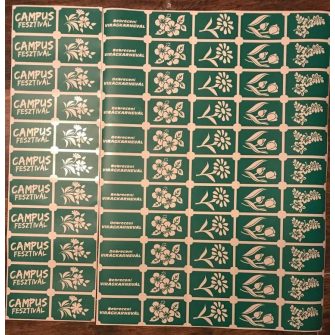 CAMPUS Debreceni
FESZTIVÁL VIRÁGKARNEVÁL
CAMPUS Debreceni
FESZTIVÁL VIRÁGKARNEVÁL
CAMPUS Debreceni
FESZTIVÁL VIRÁGKARNEVÁL
CAMPUS Debreceni
FESZTIVÁL VIRÁGKARNEVÁL
CAMPUS Debreceni
FESZTIVÁL VIRÁGKARNEVÁL
CAMPUS Debreceni
FESZTIVÁL VIRÁGKARNEVÁL
CAMPUS Debreceni
FESZTIVÁL VIRÁGKARNEVÁL
CAMPUS Debreceni
FESZTIVÁL VIRÁGKARNEVÁL
CAMPUS Debreceni
FESZTIVÁL VIRÁGKARNEVÁL
CAMPUS Debreceni
FESZTIVÁL VIRÁGKARNEVÁL
CAMPUS Debreceni
FESZTIVÁL VIRÁGKARNEVÁL